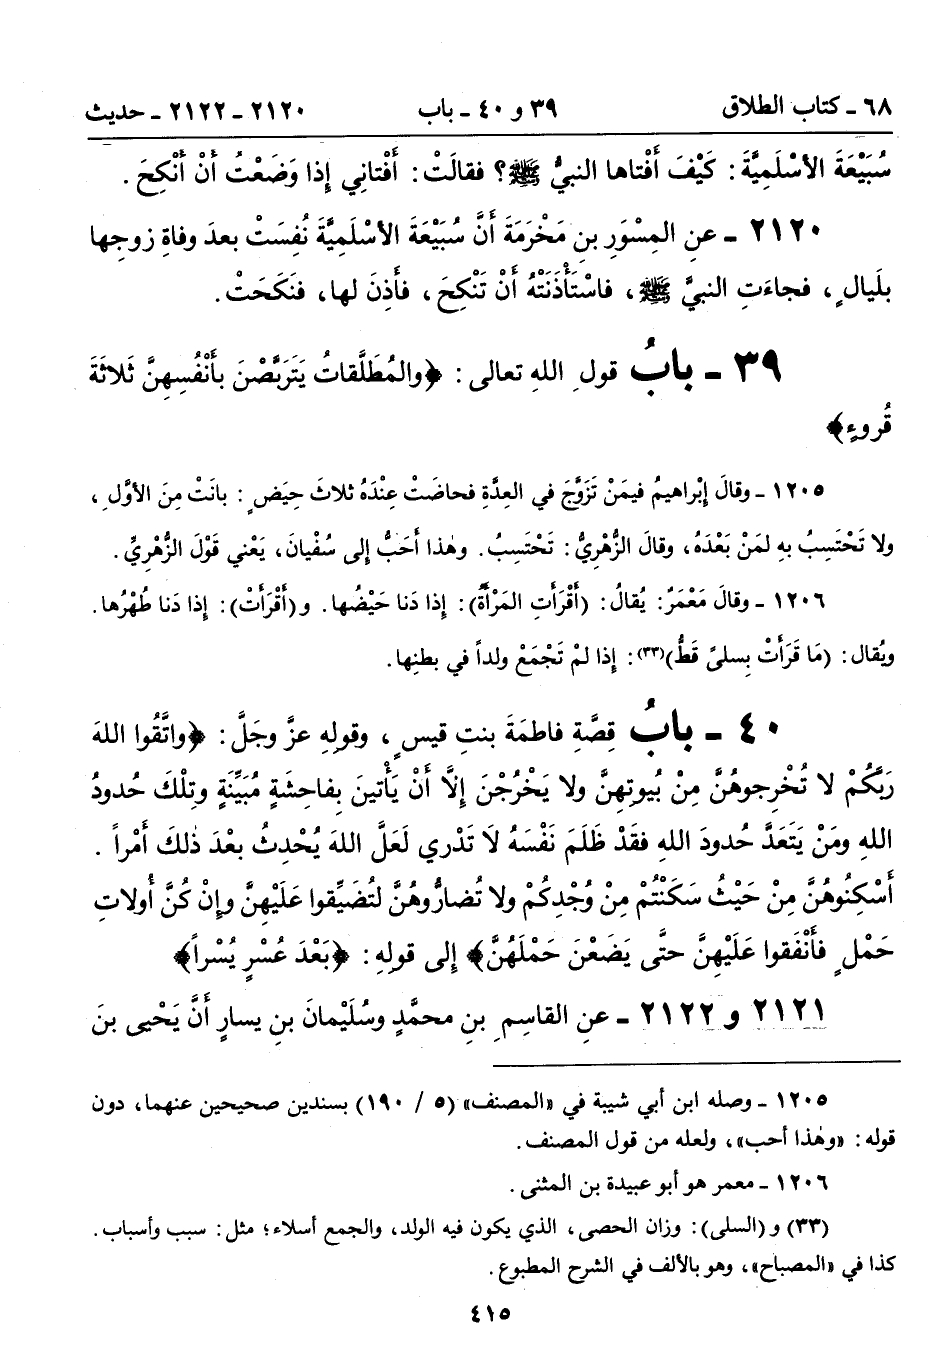 ٦٨ ـ كتاب الطلاق ٣٩ و ٤٠ ـ باب ٢١٢٠ ـ ٢١٢٢ ـ حديث
سُبَيْعَةَ الأسْلَمِيَّةَ: كَيْفَ أفْتاها النبيُّ ﷺ؟ فقالَتْ: أَفْتاني إذا وَضَعْتُ أنْ أنْكِحَ.
٢١٢٠ ـ عنِ المِسْوَرِ بنِ مَخْرَمَةَ أنَّ سُبَيْعَةَ الأسْلَمِيَّةَ نُفِسَتْ بعدَ وفاةِ زوجِها
بلَيالٍ، فجاءَتِ النبيَّ ﷺ، فاسْتَأْذَنَتْهُ أنْ تَنْكِحَ، فأذِنَ لها، فنَكَحَتْ.
٣٩ ـ بابُ قولِ اللهِ تعالى: ﴿والمُطَلَّقاتُ يَتَرَبَّصْنَ بأنْفُسِهِنَّ ثَلاثَةَ
قُروءٍ﴾
١٢٠٥ ـ وقالَ إبْراهيمُ فيمَنْ تَزَوَّجَ في العِدَّةِ فحاضَتْ عِنْدَهُ ثلاثَ حِيَضٍ: بانَتْ مِنَ الأوَّلِ،
ولا تَحْتَسِبُ بهِ لمَنْ بَعْدَهُ، وقالَ الزُّهْرِيُّ: تَحْتَسِبُ. وهٰذا أحَبُّ إلى سُفْيانَ، يَعْني قَوْلَ الزُّهْرِيِّ.
١٢٠٦ ـ وقالَ مَعْمَرٌ: يُقالُ: (أقْرَأَتِ المَرْأةُ): إذا دَنا حَيْضُها. و(أقْرَأَتْ): إذا دَنا طُهْرُها.
ويُقال: (مَا قَرَأَتْ بِسلىً قَطُّ)(٣٣): إذا لمْ تَجْمَعْ ولداً في بطنِها.
٤٠ ـ بابُ قِصَّةِ فاطمَةَ بنتِ قيسٍ، وقولِهِ عزَّ وجَلَّ: ﴿واتَّقُوا اللهَ
رَبَّكُمْ لا تُخْرِجوهُنَّ مِنْ بُيوتِهِنَّ ولا يَخْرُجْنَ إلَّا أنْ يَأْتينَ بِفاحِشَةٍ مُبَيِّنَةٍ وتِلْكَ حُدودُ
اللهِ ومَنْ يَتَعَدَّ حُدودَ اللهِ فقَدْ ظَلَمَ نَفْسَهُ لَا تَدْري لَعَلَّ اللهَ يُحْدِثُ بعْدَ ذٰلكَ أمْراً.
أَسْكِنُوهُنَّ مِنْ حَيْثُ سَكَنْتُمْ مِنْ وُجْدِكُمْ ولا تُضارُّوهُنَّ لتُضَيِّقوا عَلَيْهِنَّ وإنْ كُنَّ أُولاتِ
حَمْلٍ فأنْفَقوا عَلَيْهِنَّ حتَّى يَضَعْنَ حَمْلَهُنَّ﴾ إلى قولِهِ: ﴿بَعْدَ عُسْرٍ يُسْراً﴾
٢١٢١ و ٢١٢٢ ـ عنِ القاسِمِ بنِ محمَّدٍ وسُلَيْمانَ بنِ يسارٍ أنَّ يَحْيى بنَ
١٢٠٥ ـ وصله ابن أبي شيبة في «المصنف» (٥ / ١٩٠) بسندين صحيحين عنهما، دون
قوله: «وهٰذا أحب»، ولعله من قول المصنف.
١٢٠٦ ـ معمر هو أبو عبيدة بن المثنى.
(٣٣) و(السلى): وزان الحصى، الذي يكون فيه الولد، والجمع أسلاء؛ مثل: سبب وأسباب.
كذا في «المصباح»، وهو بالألف في الشرح المطبوع.
٤١٥